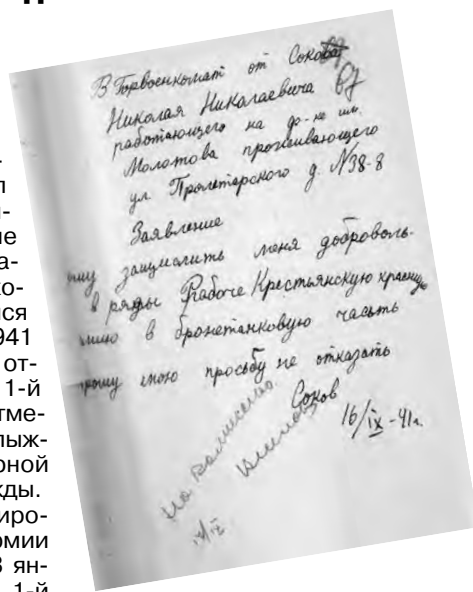 л
и-
не
а-
ко-
лся
941
от-
1-й
тме-
лыж-
рной
жды.
иро-
рмии
3 ян-
1-й
В Горвоенкомат от Сокова
Николая Николаевича
работающего на ф-ке им.
Молотова проживающего
ул. Пролетарского д. №38-8
Заявление
ошу защислить меня доброволь-
в ряды Рабоче Крестьянскую красную
в бронетанковую часть
рошу мою просьбу не отказать
Соков
16/IX-41г.
На комиссию